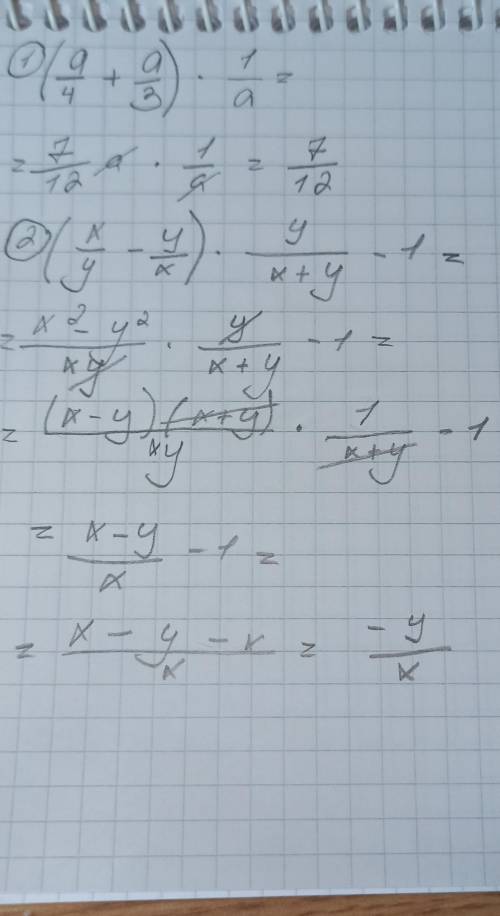 ① (a/4 + a/3) · 1/a =
= 7/12 a · 1/a = 7/12
② (x/y - y/x) · y/(x+y) - 1 =
= (x² - y²)/(xy) · y/(x+y) - 1 =
= (x-y)(x+y)/(xy) · 1/(x+y) - 1
= (x-y)/x - 1 =
= (x-y-x)/x = -y/x